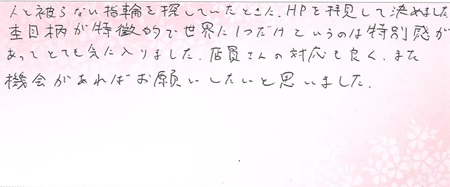 人と被らない指輪を探していたところ、HPを拝見して決めました。
杢目柄が特徴的で世界に1つだけというのは特別感が
あってとても気に入りました。店員さんの対応も良く、また
機会があればお願いしたいと思いました。